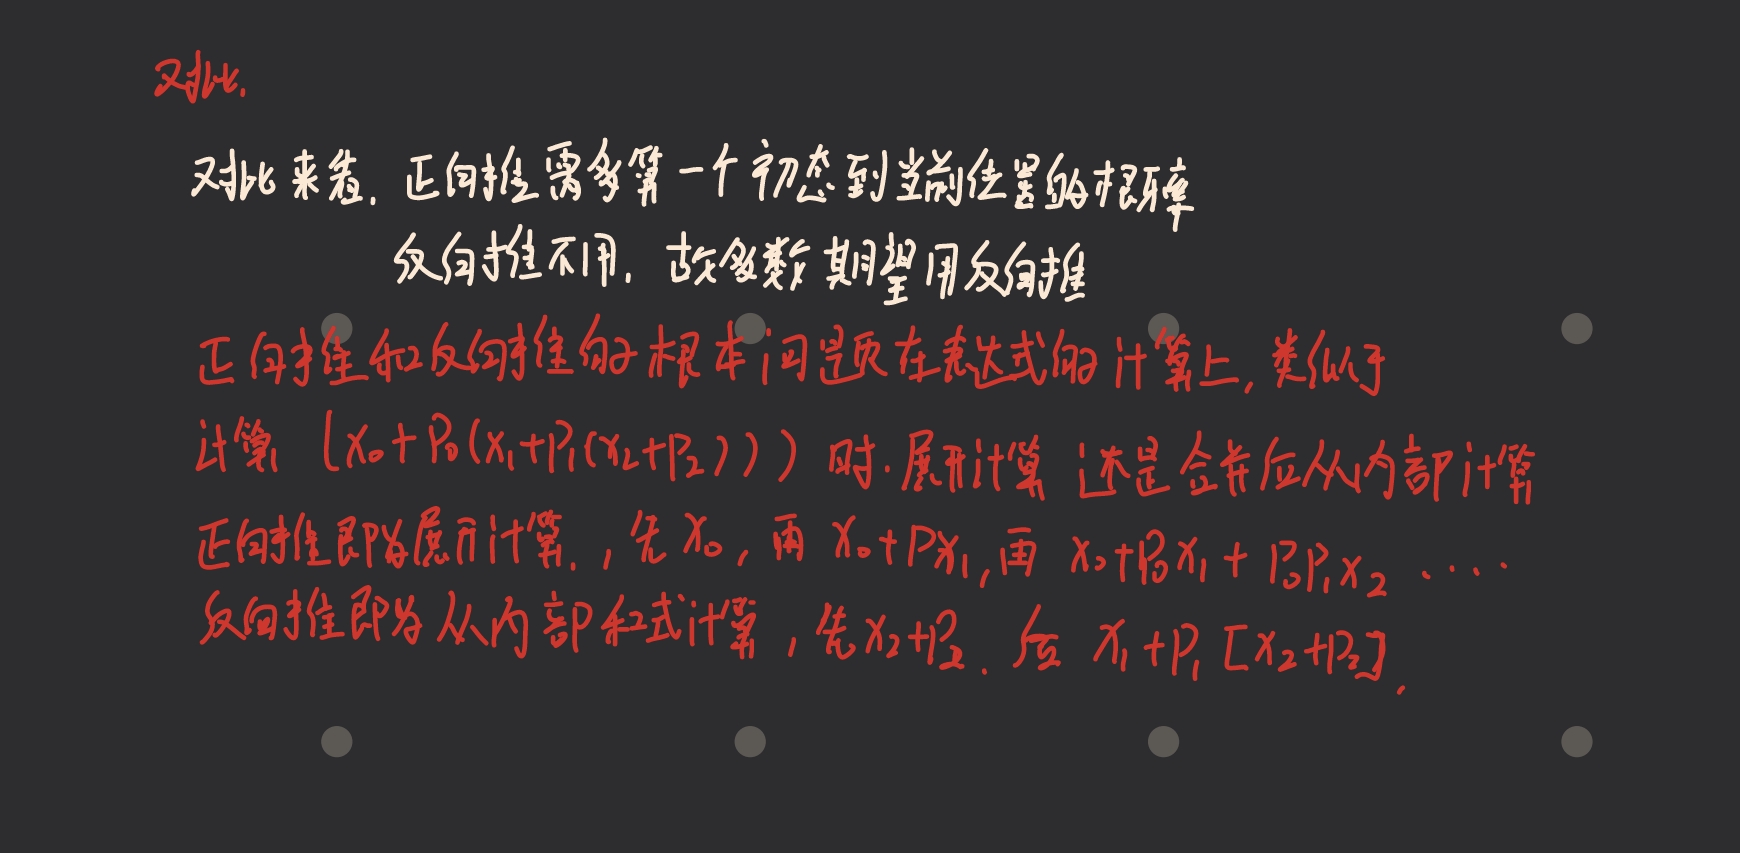 对比.
对比来看. 正向推需多算一个初态到当前位置的概率
反向推不用. 故多数期望用反向推
正向推和反向推的根本问题在表达式的计算上, 类似于
计算 (x₀+P₀(x₁+P₁(x₂+P₂))) 时. 展开计算 还是合并后从内部计算
正向推即为展开计算. , 先 x₀, 再 x₀+Px₁, 再 x₀+P₀x₁+P₀P₁x₂ ....
反向推即为从内部和式计算, 先x₂+P₂. 后 x₁+P₁[x₂+P₂].